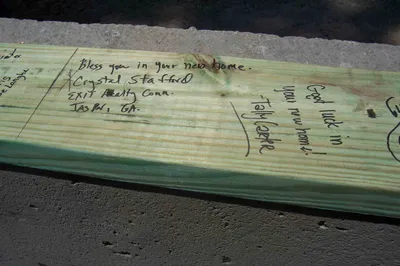 Bless you in your new home.
Crystal Stafford
EXIT Realty Conn.
JASPER, GA.
Good luck in
your new home!